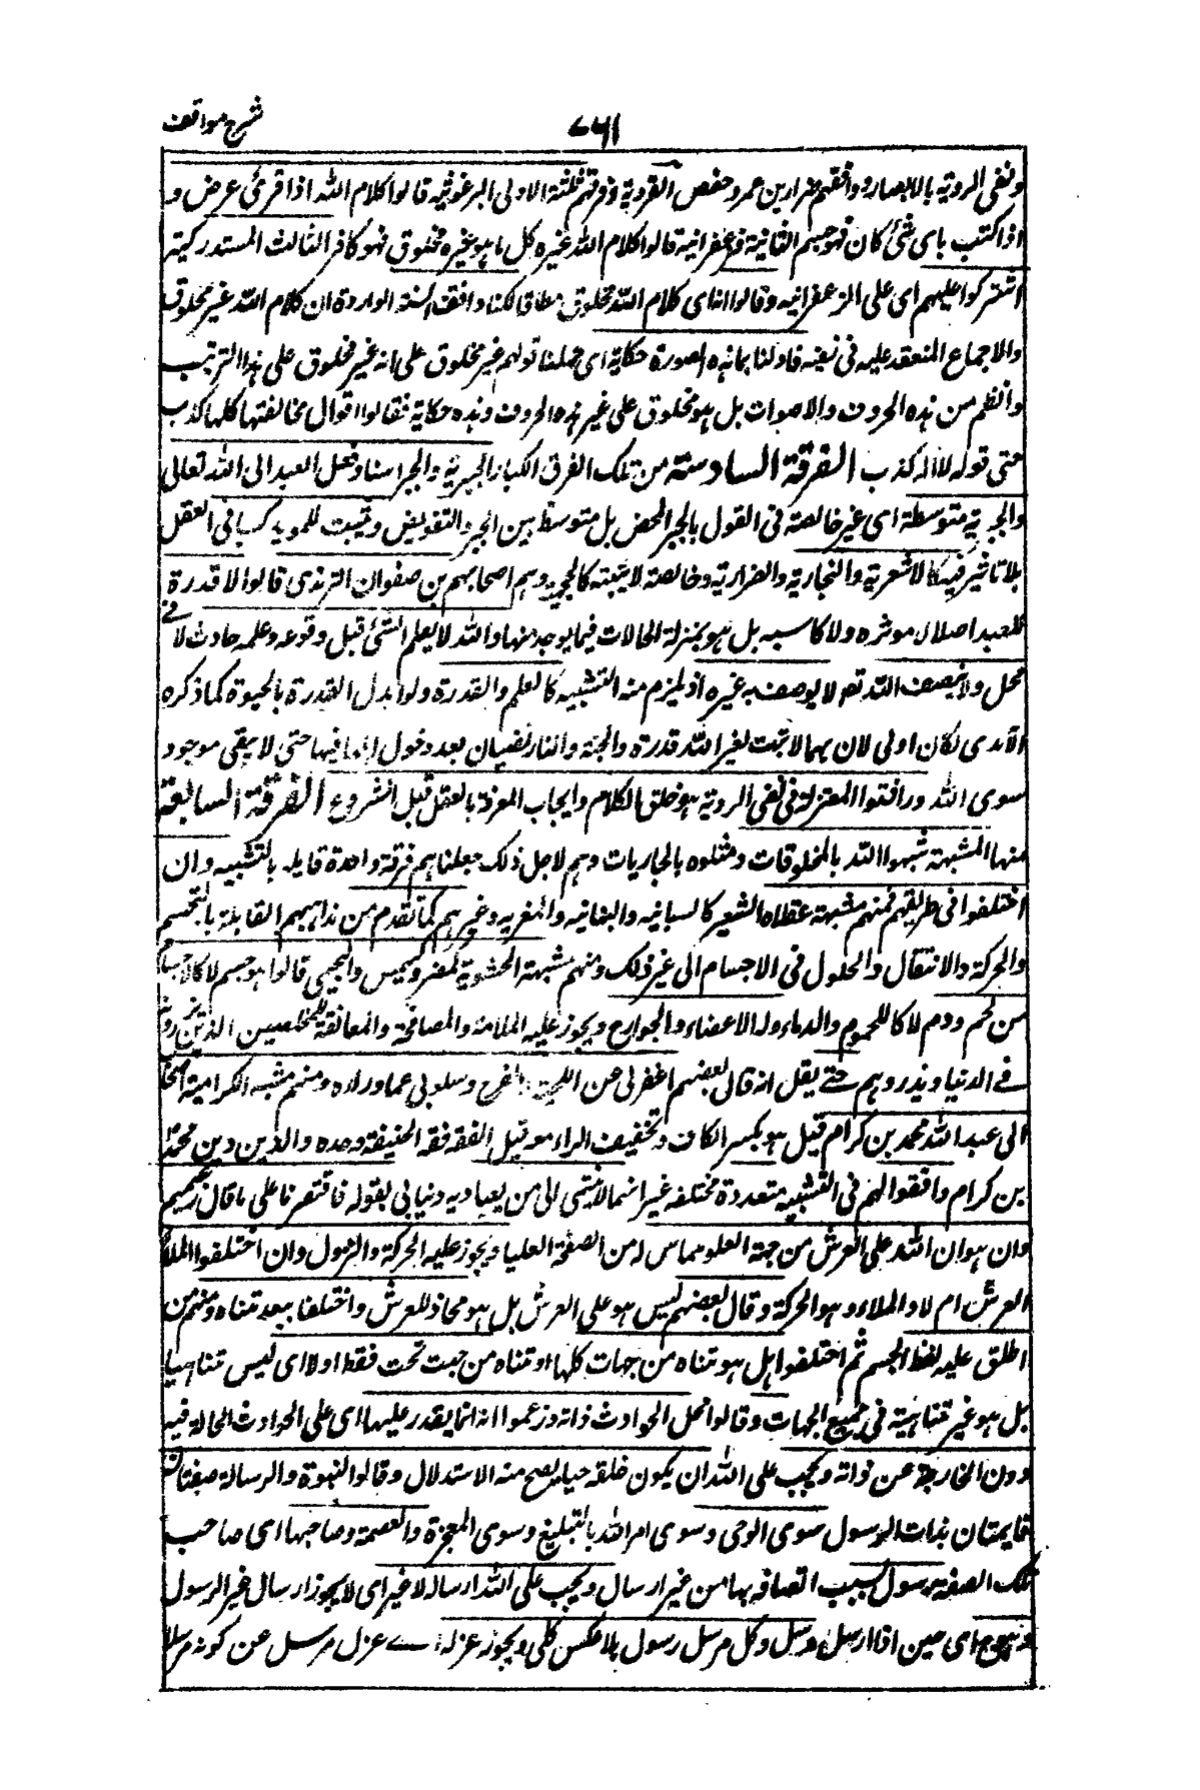 شرح مواقف
٧٦١
ونفى الروية بالابصار ووافقهم ضرار بن عمرو وحفص القرد وفرقهم ثلثة الاولى البرغوثيه قالوا كلام الله اذا قرئ عرض و
اذا كتب باى شئ كان فهو جسم الثانية الزعفرانية قالوا كلام الله غيره كل ما هو غيره مخلوق فهو كافر الثالث المستدركية
اشتركوا عليهم اى على الزعفرانيه وقالوا انه اى كلام الله مخلوق مطلقا لكنا وافقنا السنة الواردة ان كلام الله غير مخلوق
والاجماع المنعقد عليه فى نفيه فاولنا بما هذه الصورة حكاية اى حملنا قولهم غير مخلوق على انه غير مخلوق على هذا الترتيب
والنظم من هذه الحروف والاصوات بل هو مخلوق على غير هذه الحروف وهذه حكاية فقالوا اقوال مخالفتها كلها كذب
حتى قوله لا اله كذب الفرقة السادسة من تلك الفرق الكبار الجبرية والجبر اسناد فعل العبد الى الله تعالى
والجبرية متوسطة اى غير خالصة فى القول بالجبر المحض بل متوسط بين الجبر والتفويض وتثبت للعبد كسبا فى الفعل
بلا تاثير فيه كالاشعرية والنجارية والضرارية وخالصة لا تثبته كالجهمية وهم اصحاب جهم بن صفوان الترمذى قالوا لا قدرة
للعبد اصلا لا موثره ولا كاسبه بل هو بمنزلة الجمادات فيما يوجد منها والله لا يعلم الشئ قبل وقوعه وعلمه حادث لا فى
محل ولا يتصف الله تع بما لا يوصف به غيره اذ يلزم منه التشبيه كالعلم والقدرة ولو ابدل القدرة بالحيوة كما ذكره
الآمدى لكان اولى لان جهما لا يثبت لغير الله قدرة والجنة والنار تفنيان بعد دخول اهلهما فيها حتى لا يبقى موجود
سوى الله ووافقوا المعتزلة فى نفى الروية وخلق الكلام وايجاب المعرفة بالعقل قبل الشروع الفرقة السابعة
منها المشبهة شبهوا الله بالمخلوقات ومثلوه بالحادثات وهم لاجل ذلك جعلناهم فرقة واحدة قايلة بالتشبيه وان
اختلفوا فى طريقهم فمنهم مشبهة غلاة الشيعة كالسبائيه والبنانيه والمغريه وغيرهم كما تقدم من مذاهبهم القابلة بالتجسم
والحركة والانتقال والحلول فى الاجسام الى غير ذلك ومنهم مشبهة الحشوية كمضر وكهمس والهجيمى قالوا هو جسم لا كالاجسام
من لحم ودم لا كاللحوم والدماء وله الاعضاء والجوارح ويجوز عليه الملامسة والمصافحة والمعانقة للمخلصين الذين يزورونه
فى الدنيا ويزورهم حتى يقل انه قال بعضهم اعفونى عن اللحية والفرج وسلونى عما وراءه ومنهم مشبهة الكرامية اصحاب
ابى عبد الله محمد بن كرام قيل هو بكسر الكاف وتخفيف الراء ومو قيل الفقه فقه ابى حنيفة وحده والدين دين محمد
بن كرام واقوالهم فى التشبيه متعددة مختلفه غير انها لا تنتهى الى من يعبا به ويبالى بقوله فاقتصرنا على ما قال زعيمهم
وان هو ان الله على العرش من جهة العلو مماس له من الصفحة العليا ويجوز عليه الحركة والنزول وان اختلفوا ايملا
العرش ام لا والملاء وهو الحركة وقال بعضهم ليس هو على العرش بل هو محاذ للعرش واختلفا ببعد تناه ومنهم من
اطلق عليه لفظ الجسم ثم اختلفوا هل هو تناه من جهات كلها او تناه من جهت تحت فقط اولا اى ليس تناهيا
بل هو غير متناهية فى جميع الجهات وقالوا تحل الحوادث ذاته وزعموا انه انما يقدر عليها اى على الحوادث الحالة فيه
دون الخارجة عن ذاته ويجب على الله ان يكون خلقه حيا يصح منه الاستدلال وقالوا النبوة والرسالة صفتان
قايمتان بذات الرسول سوى الوحى وسوى امر الله بالتبليغ وسوى المعجزة والعصمة وصاحبها اى صاحب
تلك الصفة رسول بسبب اتصافه بها من غير ارسال ويجب على الله ارساله لا غير اى لا يجوز ارسال غير الرسول
وهو اى حين اذا ارسل مرسل وكل مرسل رسول بلا عكس كلى ويجوز عزله اى عزل مرسل عن كونه مرسلا